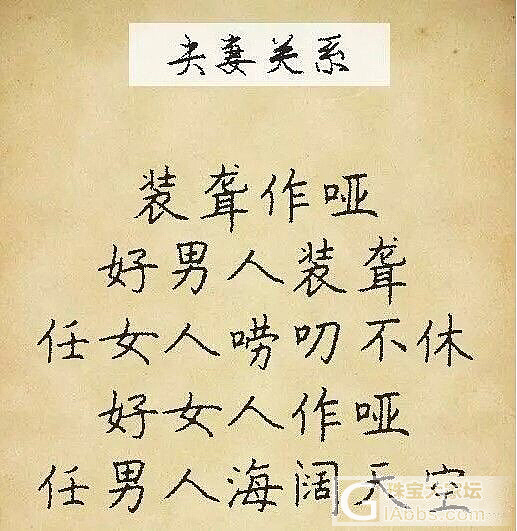 夫妻关系
装聋作哑
好男人装聋
任女人唠叨不休
好女人作哑
任男人海阔天空
GIAbbs.com